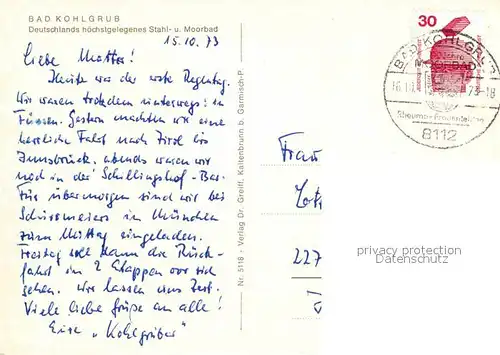 BAD KOHLGRUB
Deutschlands höchstgelegenes Stahl- u. Moorbad
15.10.73
Liebe Mutter!
Heute war der erste Regentag.
Wir waren trotzdem unterwegs: in
Füssen. Gestern machten wir eine
herrliche Fahrt nach Tirol bis
Innsbrück. abends waren wir
noch in der Schillingshof-Bar.
Für übermorgen sind wir bei
in München
zum Mittag eingeladen.
Freitag soll dann die Rück-
fahrt in 2 Etappen vor sich
gehen. Wir lassen uns Zeit.
Viele liebe Grüße an alle!
Eure "Kohlgruber"
Nr. 5118 - Verlag Dr. Greiff, Kaltenbrunn b. Garmisch-P.
30
BAD KOHLGRUB
MOORBAD
8112
Frau
227
privacy protection
Datenschutz